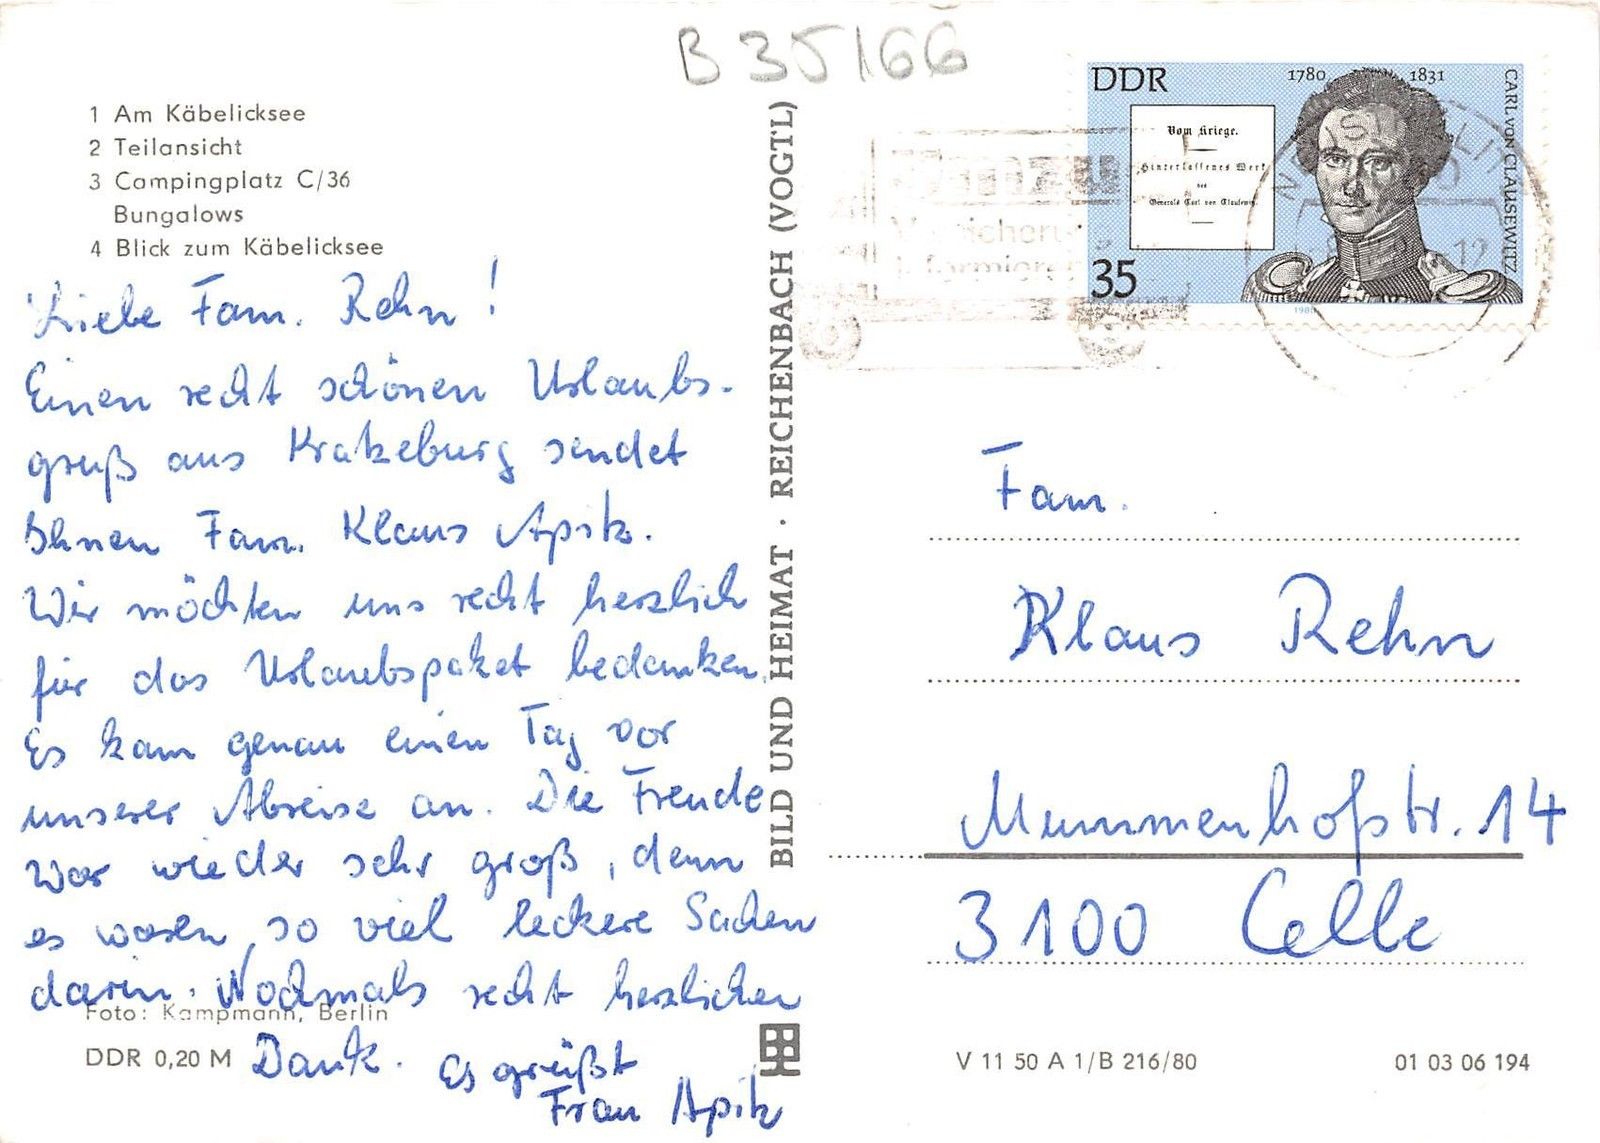 B 35166
1 Am Käbelicksee
2 Teilansicht
3 Campingplatz C/36
Bungalows
4 Blick zum Käbelicksee
Liebe Fam. Rehn!
Einen recht schönen Urlaubs-
gruß aus Kratzeburg sendet
Ihnen Fam. Klaus Apitz.
Wir möchten uns recht herzlich
für das Urlaubspaket bedanken.
Es kam genau einen Tag vor
unserer Abreise an. Die Freude
war wieder sehr groß, denn
es waren so viel leckere Sachen
darin. Nochmals recht herzlichen
Dank. Es grüßt
Frau Apitz
Foto: Kampmann, Berlin
DDR 0,20 M
BILD UND HEIMAT · REICHENBACH (VOGTL)
DDR
1780 1831
CARL VON CLAUSEWITZ
Vom Kriege.
Hinterlassenes Werk
des
Generals Carl von Clausewitz
35
1980
Fam.
Klaus Rehn
Mummenhofstr. 14
3100 Celle
V 11 50 A 1/B 216/80
01 03 06 194